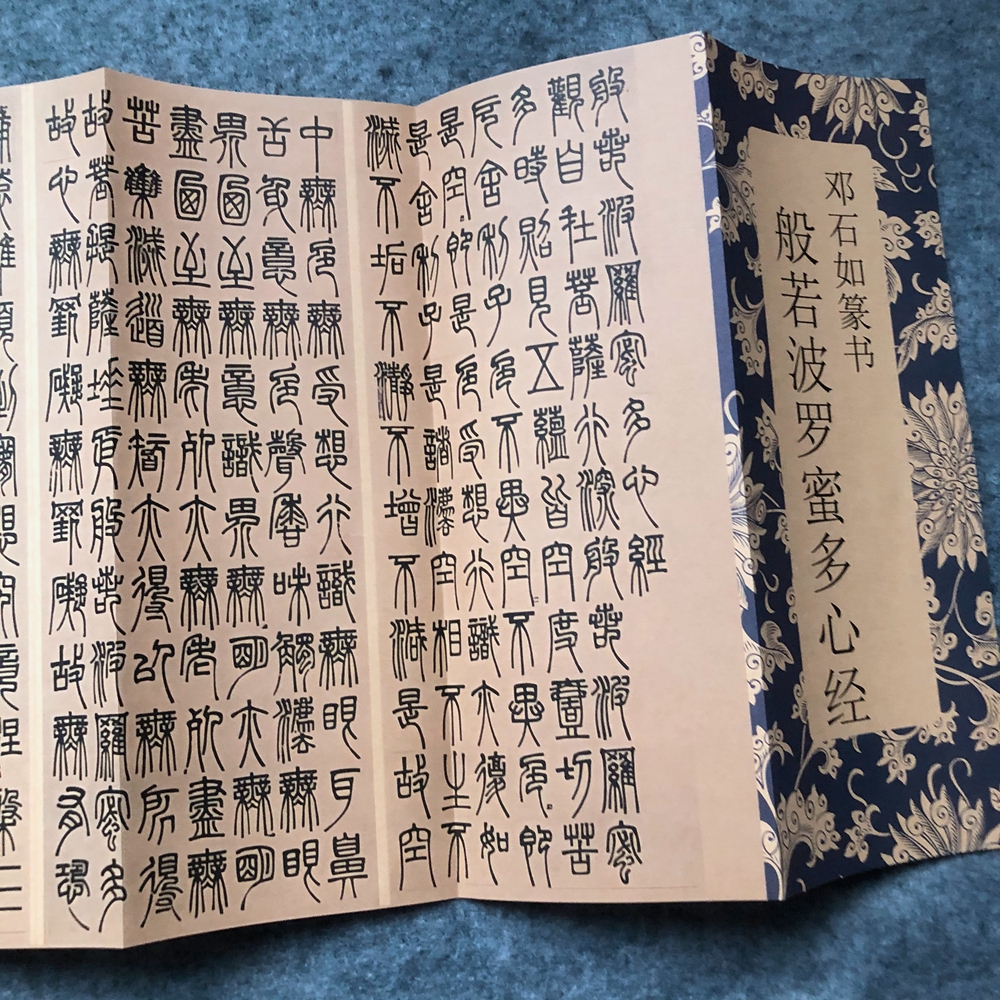 邓石如篆书
般若波罗蜜多心经
般若波羅蜜多心經
觀自在菩薩行深般若波羅蜜
多時照見五蘊皆空度壹切苦
厄舍利子色不異空不異色即
是空即是色受想行識亦復如
是舍利子是諸法空相不生不
滅不垢不瀞不增不減是故空
中無色無受想行識無眼耳鼻
舌身意無色聲香味觸法無眼
界乃至無意識界無明亦無明
盡乃至無老死亦無老死盡無
苦集滅道無智亦得以無所得
故菩提薩埵依般若波羅蜜多
故心無罣礙無罣礙故無有恐